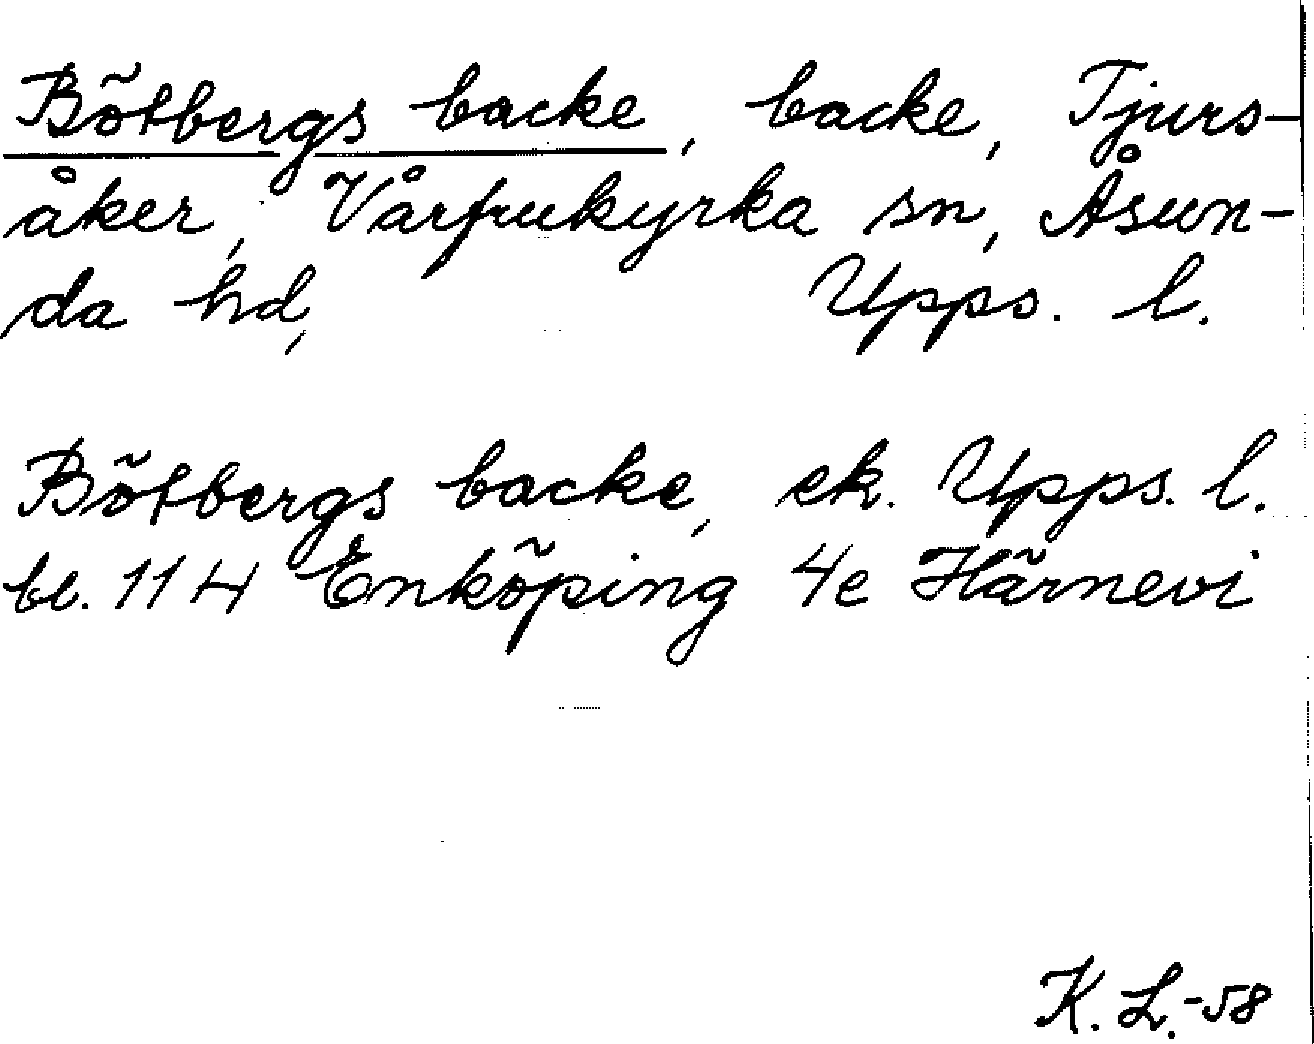 Bötbergs backe, backe, Tjurs-
åker, Vårfrukyrka sn, Åsun-
da hd, Upps. l.
Bötbergs backe, ek. Upps. l.
bl. 11 H Enköping 4e Härnevi
K. L.-58